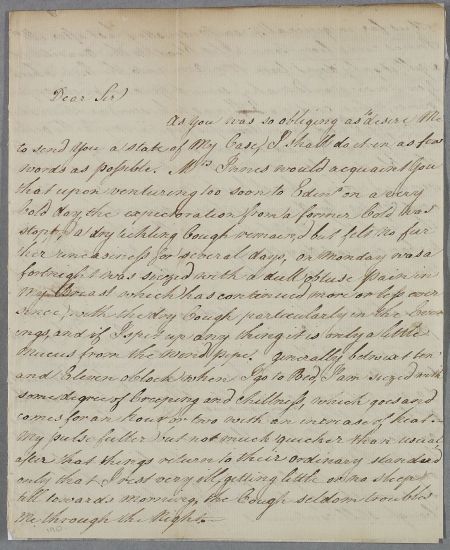 Dear Sir
As You was so obliging as to desire Me
to send You a state of My Case, I shall do it in as few
words as possible. Mrs Innes would acquaint You
that upon venturing too soon to Edinr on a very
Cold day, the expectoration from a former Cold was
stopt, a dry tickling Cough remain,d but felt no fur
ther uneasiness for several days, on Monday was a
fortnight was siezed with a dull obtuse Pain in
My Breast which has continued more or less ever
since, with the dry Cough particularly in the Even
ings, and if I spit up any thing it is only a little
mucus from the Wind pipe. generally betwixt ten
and Eleven oClock when I go to Bed, I am siezed with
some degree of Creeping and chillness, which goes and
comes for an hour or two with an increase of heat
My pulse fuller but not much quicker than usual
after that things return to their ordinary standard
only that I rest very ill, getting little or no sleep
till towards morning, the Cough seldom troubles
Me through the Night.